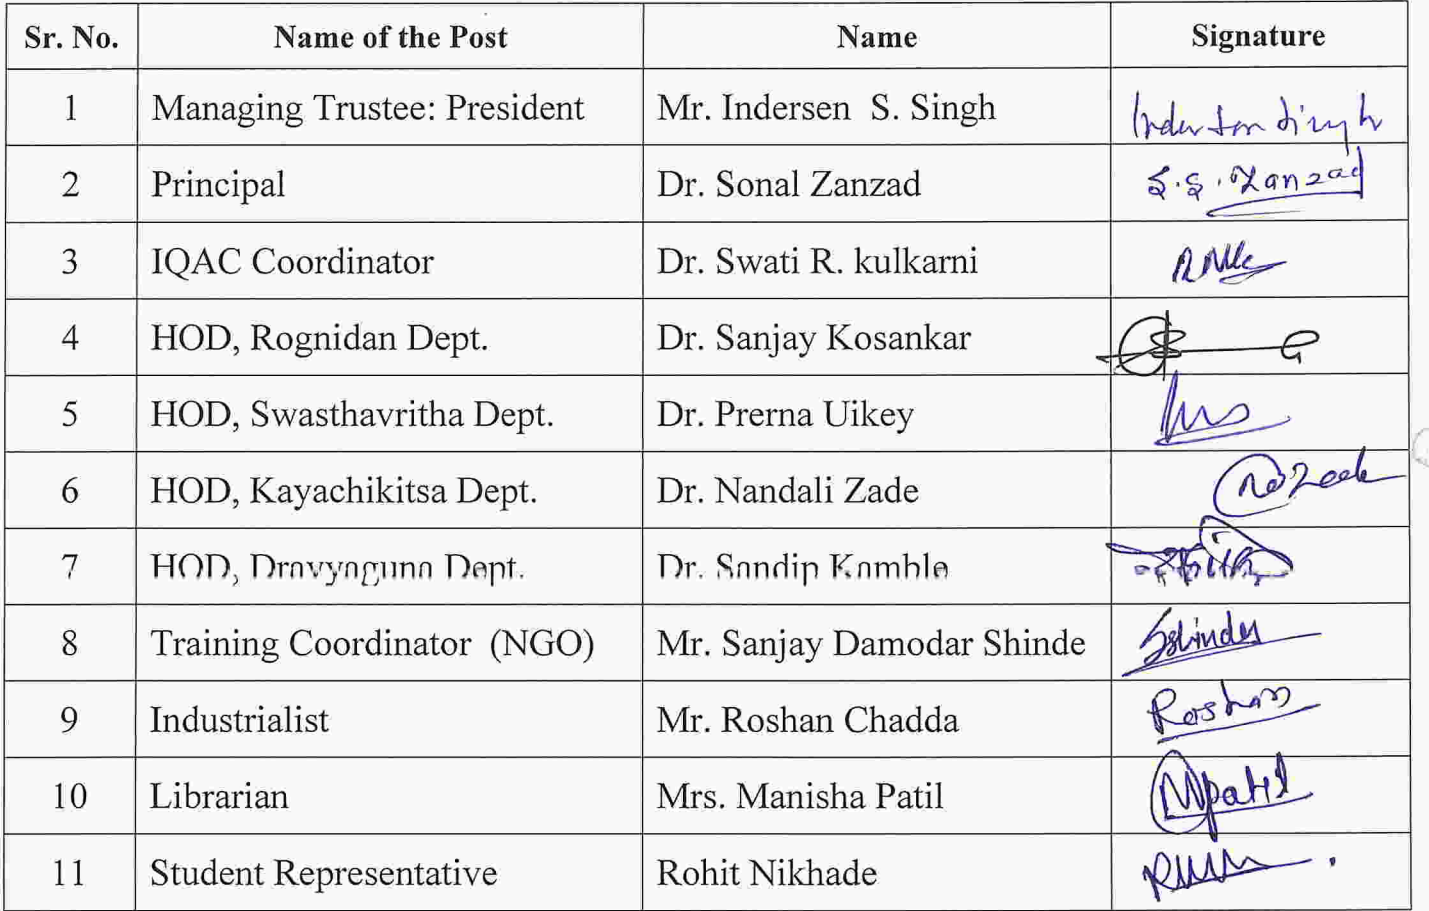 Sr. No. Name of the Post Name Signature
1 Managing Trustee: President Mr. Indersen S. Singh
2 Principal Dr. Sonal Zanzad S.S. Zanzad
3 IQAC Coordinator Dr. Swati R. kulkarni
4 HOD, Rognidan Dept. Dr. Sanjay Kosankar
5 HOD, Swasthavritha Dept. Dr. Prerna Uikey
6 HOD, Kayachikitsa Dept. Dr. Nandali Zade
7 HOD, Dravyaguna Dept. Dr. Sandip Kamble
8 Training Coordinator (NGO) Mr. Sanjay Damodar Shinde
9 Industrialist Mr. Roshan Chadda Roshan
10 Librarian Mrs. Manisha Patil MPatil
11 Student Representative Rohit Nikhade